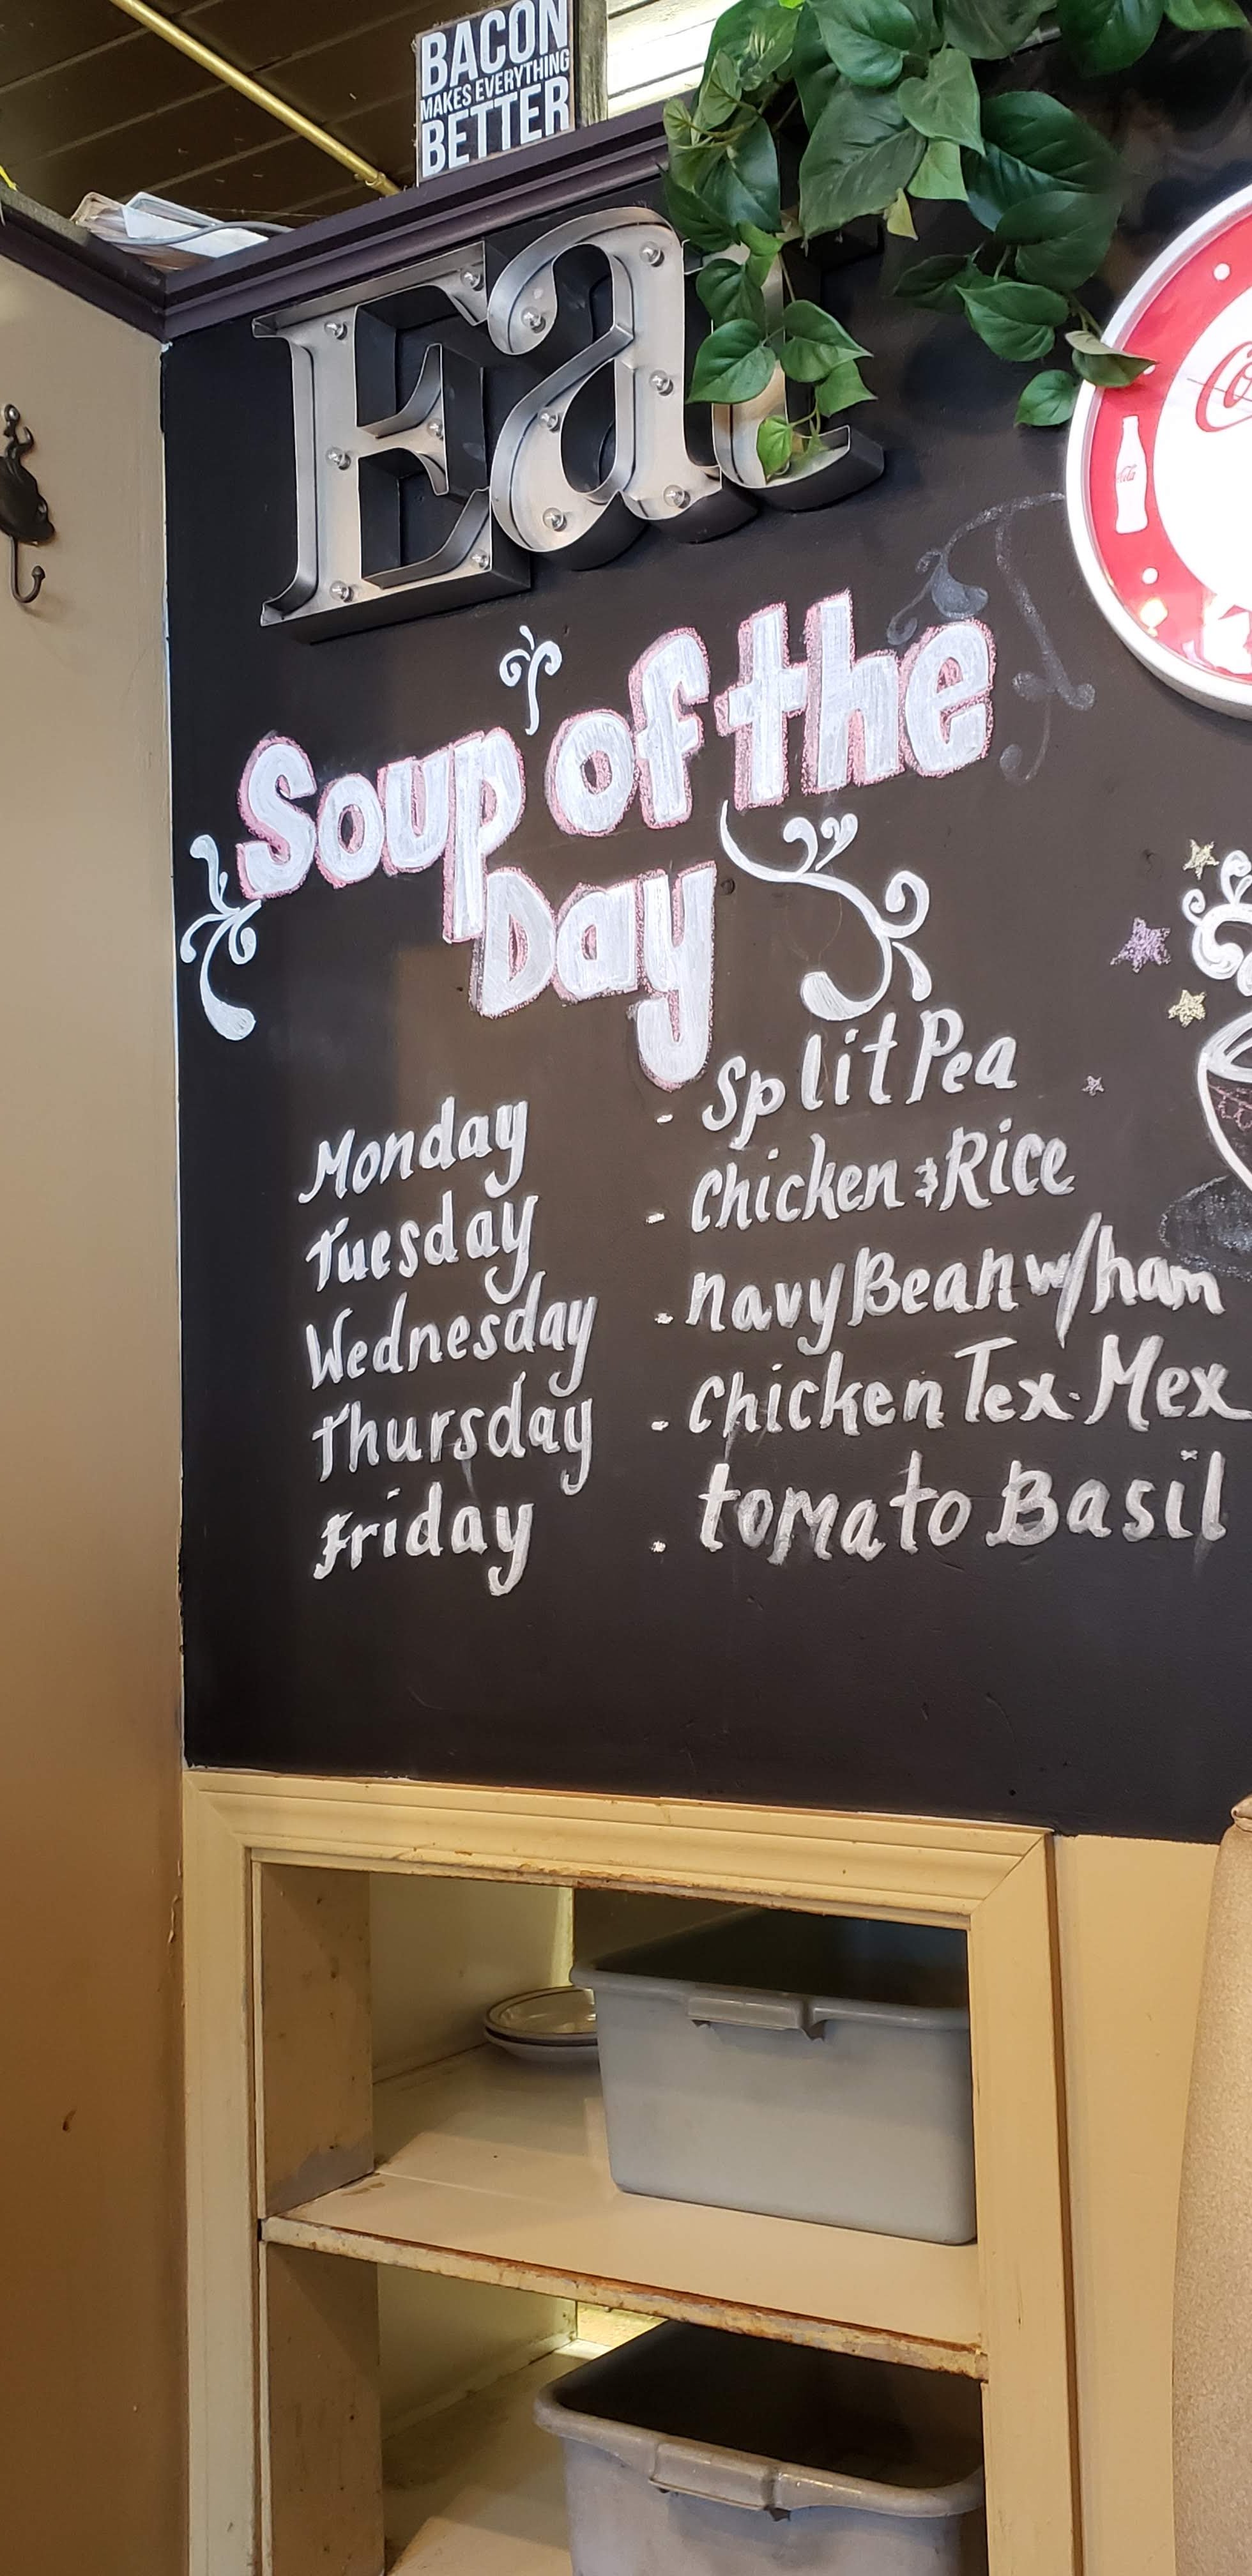 BACON
MAKES EVERYTHING
BETTER
Eat
Soup of the
Day
Monday - Split Pea
Tuesday - Chicken & Rice
Wednesday - navy Bean w/ham
Thursday - Chicken Tex-Mex
Friday - tomato Basil